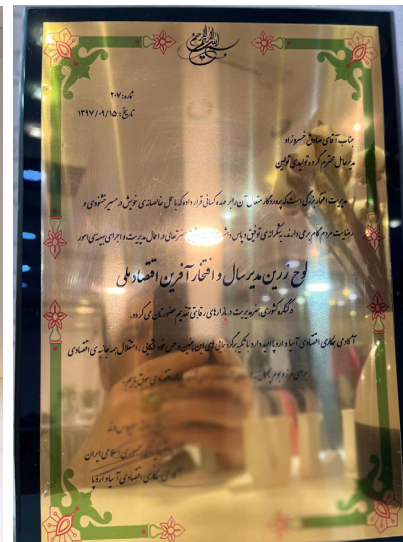 شماره: ۲۰۷
تاریخ: ۱۳۹۷/۰۹/۱۵
جناب آقای صادق خسروزاد
مدیرعامل محترم گروه تولیدی توابین
مدیریت افتخار بزرگی است که پروردگار متعال آن را بر عهده کسانی قرار داده که با عمل خالصانه‌ی خویش در مسیر خشنودی و
رضایت مردم گام برمی دارند. به شکرانه‌ی توفیق و پاس در اعمال مدیریت و اجرای بهینه‌ی امور
لوح زرین مدیر سال و افتخار آفرین اقتصاد ملی
در کنگره کشوری هنر مدیریت و بازارهای رقابتی تقدیم حضورتان می گردد.
آکادمی همکاری اقتصادی آسیا و اروپا امید دارد با تکیه بر مدیرانی این چنین و حس خودکفایی، استقلال همه جانبه‌ی اقتصادی
برای مرز و بوم
اسلامی ایران
همکاری اقتصادی آسیا و اروپا